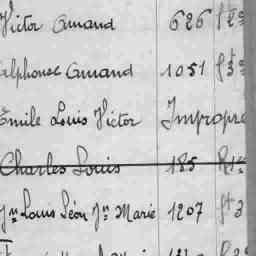 Victor Amand 626
Alphonse Amand 1051
Émile Louis Victor Impropre
Charles Louis 185
Jn Louis Léon Jn Marie 1207